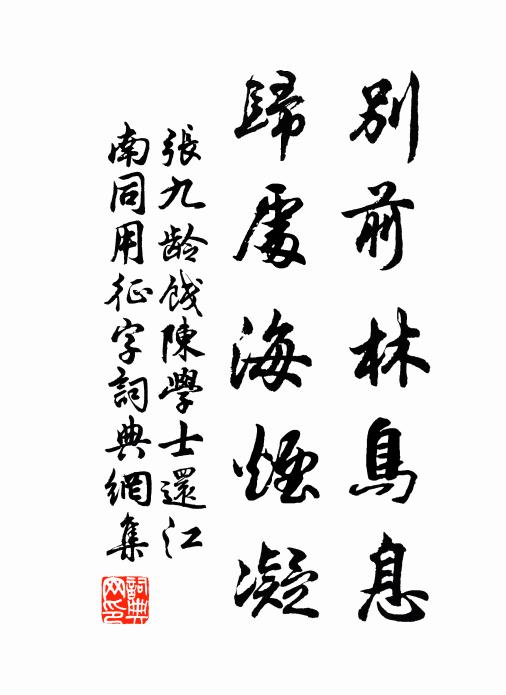 別前林鳥息
歸處海煙凝
張九齡餞陳學士還江
南同用征字詞典網集
詞典网印